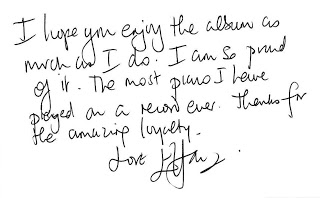 I hope you enjoy the album as
much as I do. I am so proud
of it. The most piano I have
played on a record ever. Thanks for
the amazing loyalty.
Love